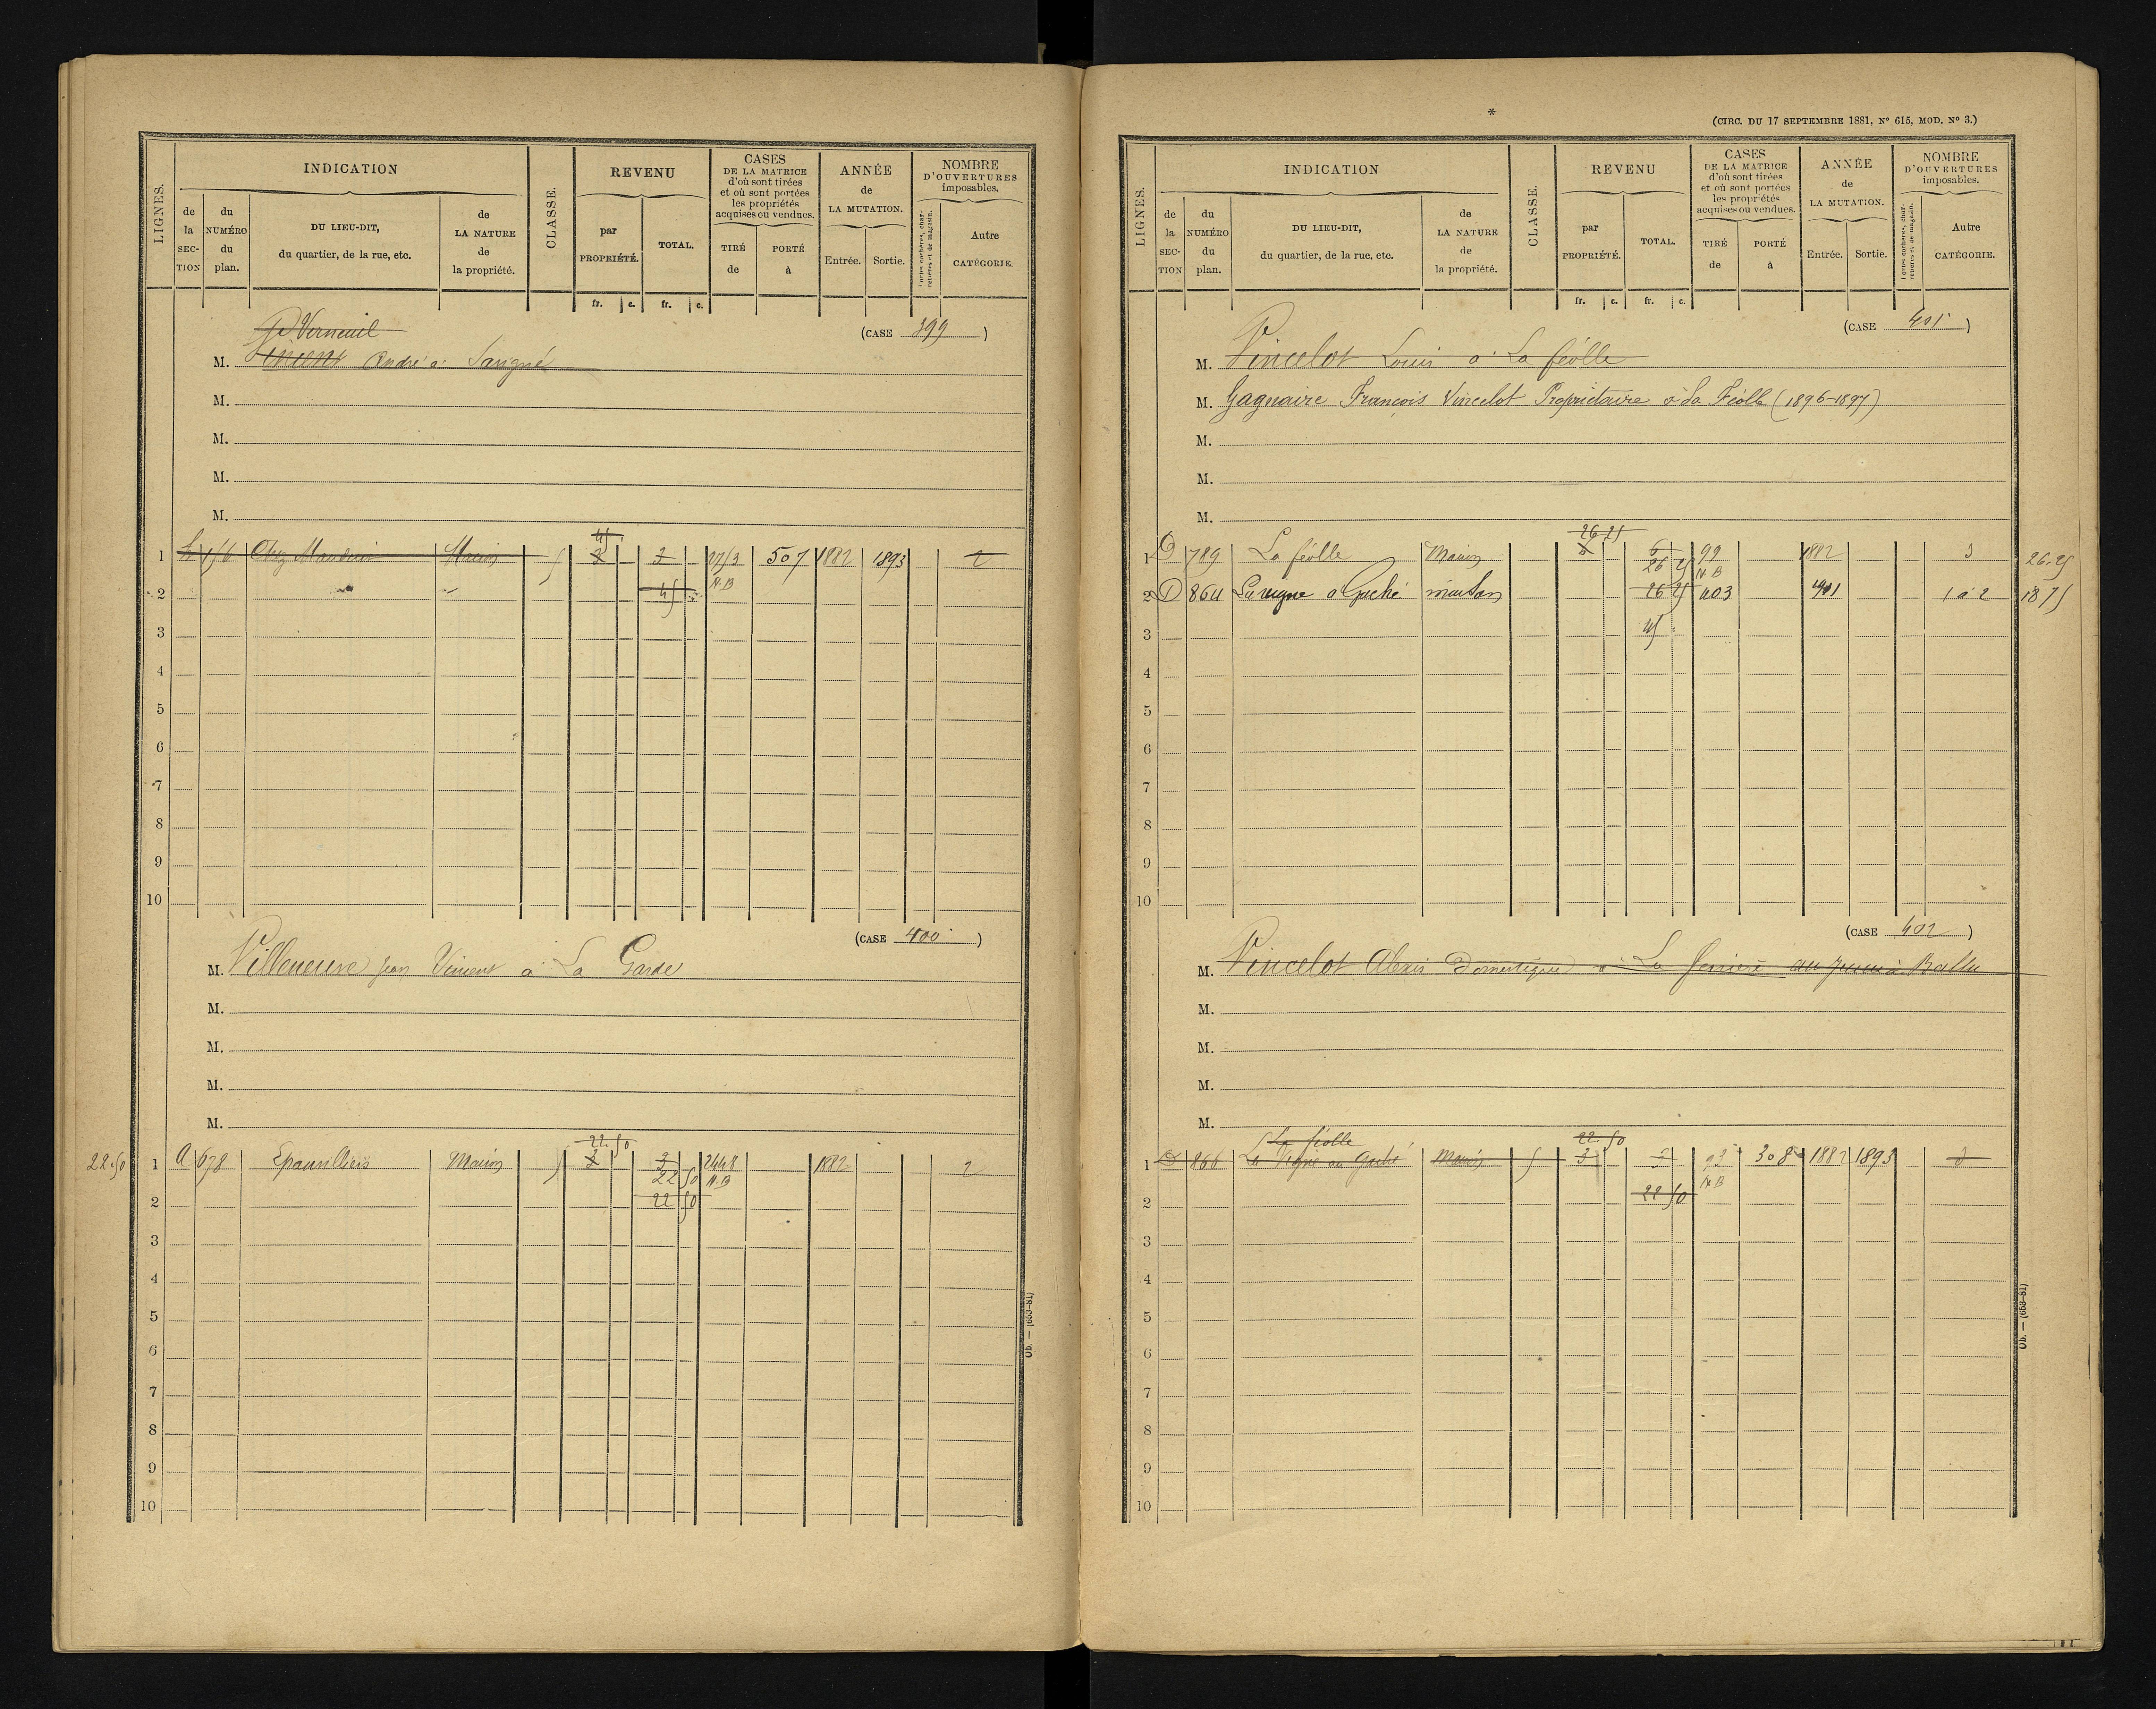 LIGNES.
INDICATION
de la SECTION
du NUMÉRO du plan.
DU LIEU-DIT, du quartier, de la rue, etc.
de LA NATURE de la propriété.
CLASSE.
REVENU
par PROPRIÉTÉ.
TOTAL.
fr. c. fr. c.
CASES DE LA MATRICE d'où sont tirées et où sont portées les propriétés acquises ou vendues.
TIRÉ de
PORTÉ à
ANNÉE de LA MUTATION.
Entrée. Sortie.
NOMBRE D'OUVERTURES imposables.
Portes cochères, charretières et de magasin.
Autre CATÉGORIE.
(CASE 399)
de Verneuil
M. Vincent André à Savigné
M.
M.
M.
M.
45
1 156 Chez Mauduin Maison 5 3 3 1713 507 1882 1893 2
2 45 N.B
3
4
5
6
7
8
9
10
(CASE 400)
M. Villeneuve Jean Vincent à La Garde
M.
M.
M.
M.
22.50
22.50 1 A 678 Epanvilliers Maison 5 3 3 2448 1882 2
22 50 N.B
2 22 50
3
4
5
6
7
8
9
10
Ob. — (653-81)
*
(CIRC. DU 17 SEPTEMBRE 1881, N° 615, MOD. N° 3.)
LIGNES.
INDICATION
de la SECTION
du NUMÉRO du plan.
DU LIEU-DIT, du quartier, de la rue, etc.
de LA NATURE de la propriété.
CLASSE.
REVENU
par PROPRIÉTÉ.
TOTAL.
fr. c. fr. c.
CASES DE LA MATRICE d'où sont tirées et où sont portées les propriétés acquises ou vendues.
TIRÉ de
PORTÉ à
ANNÉE de LA MUTATION.
Entrée. Sortie.
NOMBRE D'OUVERTURES imposables.
Portes cochères, charretières et de magasin.
Autre CATÉGORIE.
(CASE 401)
M. Vincelot Louis à La féolle
M. Gagnaire François Vincelot Propriétaire à La Féolle (1896-1897)
M.
M.
M.
26 25
1 D 789 La féolle Maison 6 99 1882 3 26.25
26 25 N.B
2 D 864 La vigne a Gaché maison 26 25 403 1901 1 à 2 18 75
3 45
4
5
6
7
8
9
10
(CASE 402)
M. Vincelot Alexis Domestique à La ferrière au à Ballu
M.
M.
M.
M.
La féolle 22.50
1 D 866 La Vigne au Gaché Maison 5 3 3 93 308 1882 1893 3
2 22 50 N.B
3
4
5
6
7
8
9
10
Ob. — (653-81)